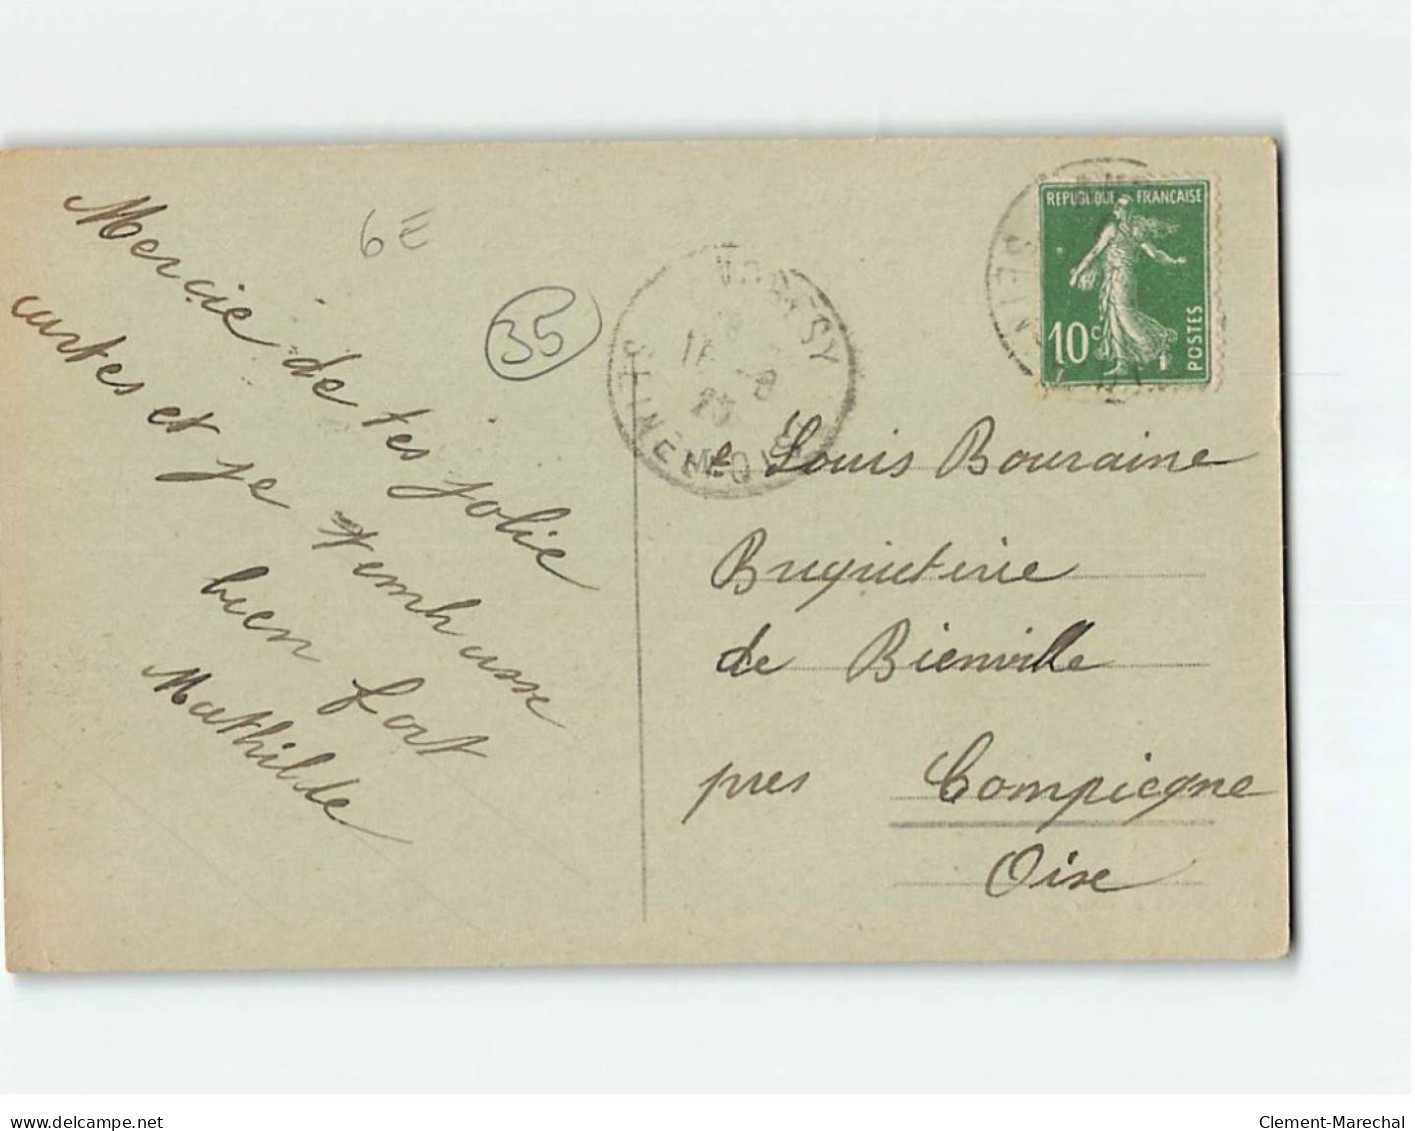 6E
35
Mercie de tes jolie
cartes et je t'embrasse
bien fort
Mathilde
REPUBLIQUE FRANÇAISE
10c
POSTES
VORESSY
SEINE & OISE
Me Louis Bouraine
Briquetirie
de Bienville
pres Compiegne
Oise
www.delcampe.net
Clement-Marechal